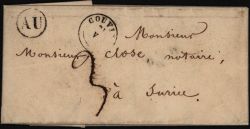 AU
COUVIN
Monsieur
Monsieur close notaire,
3
à Surice.